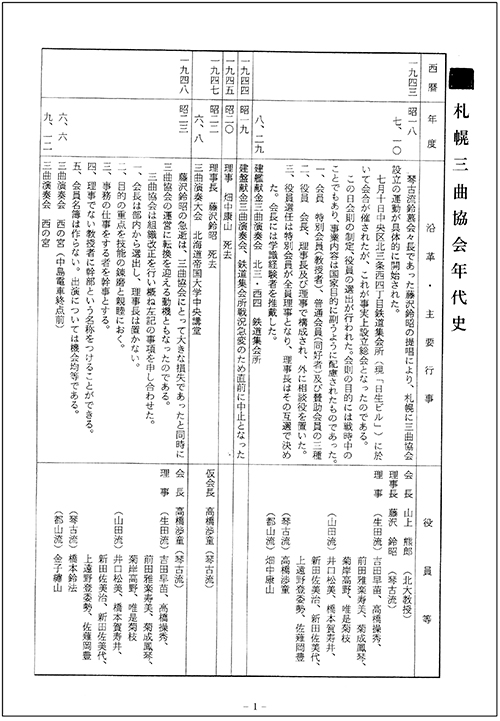 札幌三曲協会年代史
西暦 年度 沿革・主要行事 役員等
一九四三 昭一八
七、一〇
琴古流鈴慕会々長であった藤沢鈴昭の提唱により、札幌に三曲協会
設立の運動が具体的に開始された。
七月十日中央区北三条西四丁目鉄道集会所(現「日生ビル」)に於
いて会合が催されたが、これが事実上設立総会となったのである。
この日会則の制定、役員の選出が行われた。会則の目的には戦時中の
ことでもあり、事業内容は国家目的に副うように配慮されたものであった。
一、会員 特別会員(教授者)、普通会員(同好者)及び賛助会員の三種
二、役員 会長、理事長及び理事で構成され、外に相談役を置いた。
三、役員選任は特別会員が全員理事となり、理事長はその互選で決め
た。会長には学識経験者を推戴した。
会長 山上熊郎 (北大教授)
理事長 藤沢鈴昭 (琴古流)
理事 (生田流) 吉田早苗、高橋操秀、
前田雅楽寿美、菊成鳳琴、
菊岸高野、唯是菊枝
(山田流) 井口松美、橋本賀寿井、
新田佐美治、新田佐美代、
上遠野登委勢、佐薙岡豊
(琴古流) 高橋渉童
(都山流) 畑中康山
八、二九 建艦献金三曲演奏会 北三・西四 鉄道集会所
一九四四 昭一九 建艦献金三曲演奏会、鉄道集会所戦況急変のため直前に中止となった
一九四五 昭二〇 理事 畑中康山 死去
一九四七 昭二二 理事長 藤沢鈴昭 死去
仮会長 高橋渉童(琴古流)
六、八 三曲演奏大会 北海道帝国大学中央講堂
一九四八 昭二三
藤沢鈴昭の急逝は、三曲協会にとって大きな損失であったと同時に
三曲協会の運営に転換を迎える動機ともなったのである。
三曲協会は組織改正を行い概ね左記の事項を申し合わせた。
一、会長は部内から選出し、理事長は置かない。
二、目的の重点を技能の錬磨と親睦におく。
三、事務の仕事をする者を幹事とする。
四、理事でない教授者に幹部という名称をつけることができる。
五、会員名簿は作らない。出演については機会均等である。
会長 高橋渉童(琴古流)
理事 (生田流) 吉田早苗、高橋操秀、
前田雅楽寿美、菊成鳳琴、
菊岸高野、唯是菊枝
(山田流) 井口松美、橋本賀寿井、
新田佐美治、新田佐美代、
上遠野登委勢、佐薙岡豊
(琴古流) 橋本鈴法
(都山流) 金子禱山
六、六 三曲演奏会 西の宮(中島電車終点前)
九、一二 三曲演奏会 西の宮
- 1 -